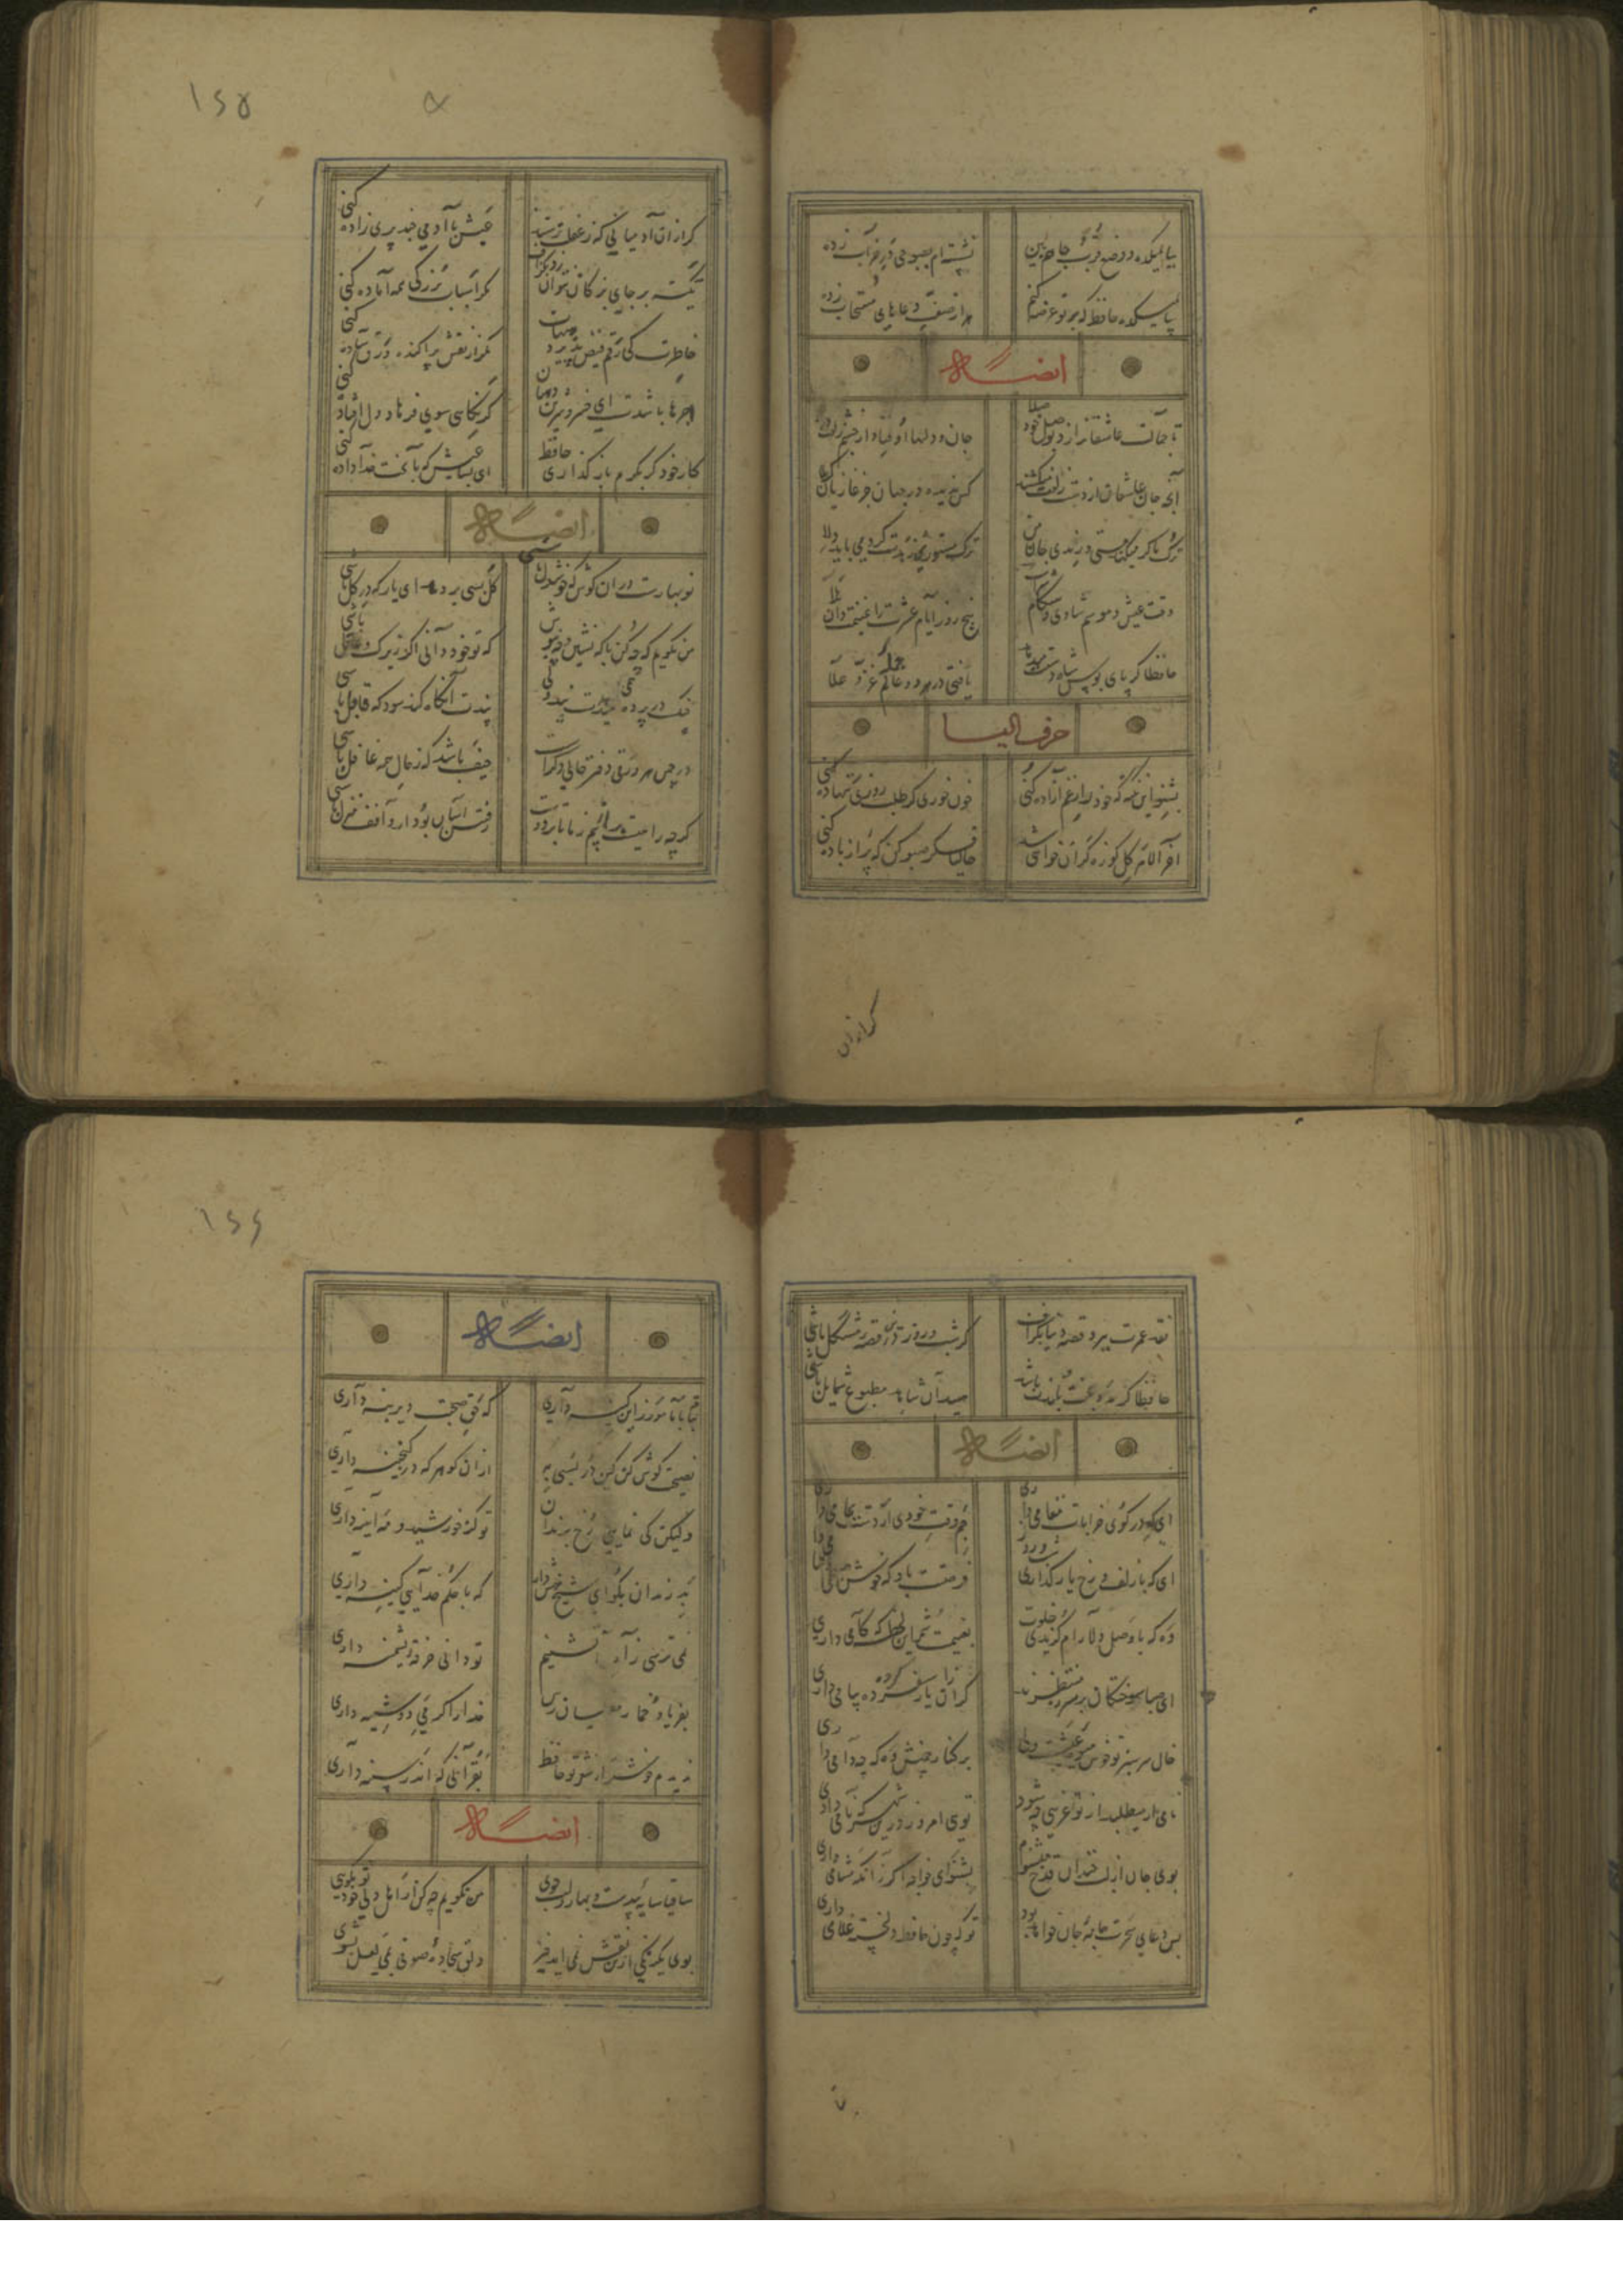 بیا بمیکده و وضع قرب جاهم بین
نشسته‌ام بصبوحی در خراب زده
بیا بمیکده حافظ که بر تو عرضه کنم
هزار صف ز دعاهای مستجاب زده
ایضاً له
تا جمالت عاشقان را زد بوصل خود صلا
جان و دلها اوفتاد از
آنچه جان عاشقان از دست زلفت میکشد
کس ندیده در جهان جز غازیان کربلا
ترک ما گر میکند مستی و رندی جان من
ترک مستوری و زهدت کرد می باید دلا
وقت عیش و موسم شادی و هنگام شراب
پنج روز ایام عشرت را غنیمت دان
حافظا گر پای بوس شاه دستت میدهد
یافتی در هر دو عالم عز و علا
حرف الیا
بشنو این نکته که خود را ز غم آزاده کنی
خون خوری گر طلب روزی ننهاده کنی
آخر الامر گل کوزه گران خواهی شد
حالیا فکر سبو کن که پر از باده کنی
گر از آن
۱۶۵
گر از آن آدمیانی که
عیش با آدمی چند پری زاده کنی
تکیه بر جای بزرگان نتوان زد بگزاف
مگر اسباب بزرگی همه آماده کنی
خاطرت کی رقم فیض پذیرد هیهات
مگر از نقش پراکنده ورق ساده کنی
اجرها باشدت ای خسرو شیرین دهنان
گر نگاهی سوی فرهاد دل افتاده کنی
کار خود گر بکرم بازگذاری حافظ
ای بسا عیش که با بخت خداداده کنی
ایضاً له
نوبهارست در آن کوش که خوشدل باشی
که بسی بر دمد ای یار که در گل باشی
من نگویم که چه کن با که نشین و چه بنوش
که تو خود دانی اگر زیرک و عاقل باشی
چنگ در پرده همی میدهدت پند ولی
پندت آنگاه کند سود که قابل باشی
در چمن هر ورقی دفتر حالی دگر است
حیف باشد که ز حال همه غافل باشی
گر چه راهیست پر از بیم ز ما تا بر دوست
رفتن آسان بود ار واقف منزل باشی
نقد عمرت ببرد قصه دنیا بگزاف
گر شب و روز درین قصه مشکل باشی
حافظا گر مدد بخت بلندت باشد
صید آن شاهد مطبوع شمایل باشی
ایضاً له
ای که در کوی خرابات مقامی داری
جم وقت خودی ار دست بجامی داری
ای که با زلف و رخ یار گذاری شب و روز
فرصتت باد که خوش
وه که با وصل دلارام گزیدی خلوت
ای صبا سوختگان بر سر ره منتظرند
گر از آن یار سفر کرده پیامی داری
خال سرسبز تو خوش
بر کنار چمنش وه که چه دامی داری
نامی ار میطلبد از تو غریبی چه شود
توی امروز درین شهر که نامی داری
بوی جان از لب خندان قدح میشنوم
بشنو ای خواجه اگر زانکه مشامی داری
بس دعای سحرت حارس جان خواهد بود
تو که چون حافظ غلامی داری
۱۶۶
ایضاً له
بیا با ما مورز این کینه داری
که حق صحبت دیرینه داری
نصیحت گوش کن کین در بسی به
از آن گوهر که در گنجینه داری
ولیکن کی نمایی رخ برندان
تو کز خورشید و مه آینه داری
بد رندان مگو ای شیخ هش دار
که با حکم خدایی کینه داری
نمی ترسی ز آه آتشینم
تو دانی خرقه پشمینه داری
بفریاد خمار مفلسان رس
خدا را گر می دوشینه داری
ندیدم خوشتر از شعر تو حافظ
بقرآنی که اندر سینه داری
ایضاً له
ساقیا سایه بیدست و بهار و لب جوی
من نگویم چه کن ار اهل دلی خود تو بگوی
بوی یکرنگی ازین نقش نمی آید خیز
دلق سجاده صوفی بمی لعل بشوی